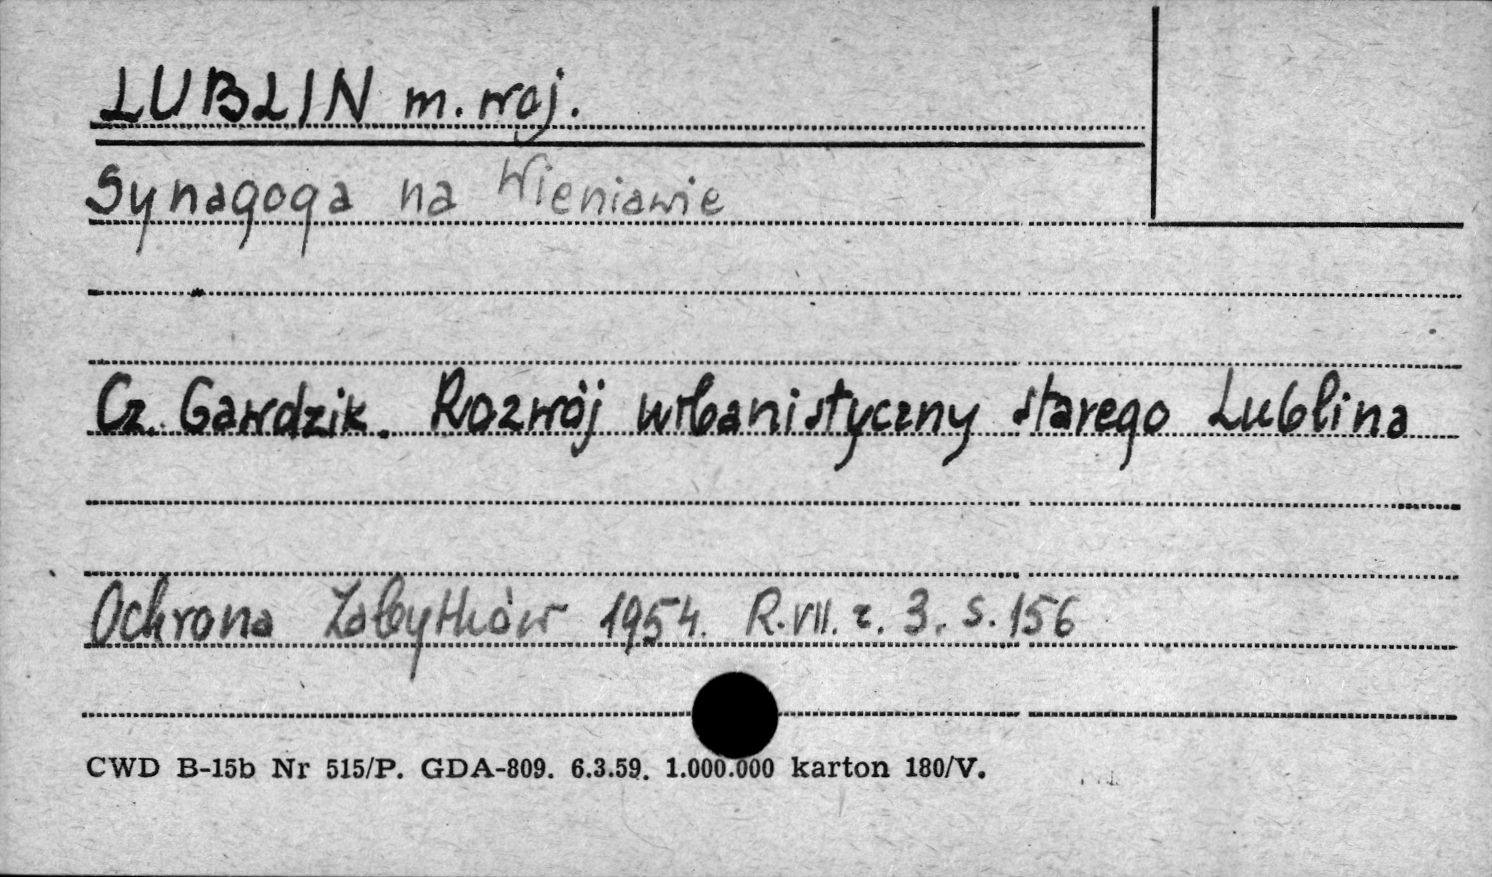 LUBLIN m. woj.
Synagoga na Wieniawie
Cz. Gawdzik. Rozwój urbanistyczny starego Lublina
Ochrona Zabytków 1954. R. VII. z. 3. s. 156
CWD B-15b Nr 515/P. GDA-809. 6.3.59. 1.000.000 karton 180/V.